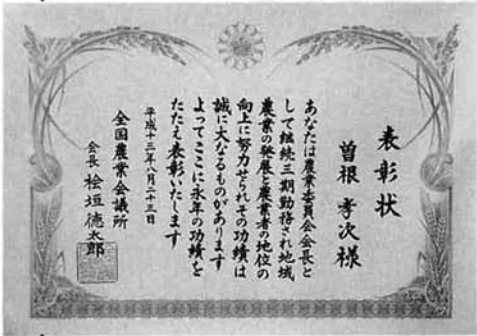 表彰状
曽根孝次様
あなたは農業委員会会長と
して継続三期勤務され地域
農業の発展と農業者の地位の
向上に努力せられその功績は
誠に大なるものがあります
よってここに永年の功績を
たたえ表彰いたします
平成十三年八月二十三日
全国農業会議所
会長 桧垣徳太郎